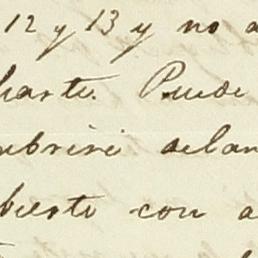 12 y 13 y no a
harte. Puede
ubriré delan
bierto con a